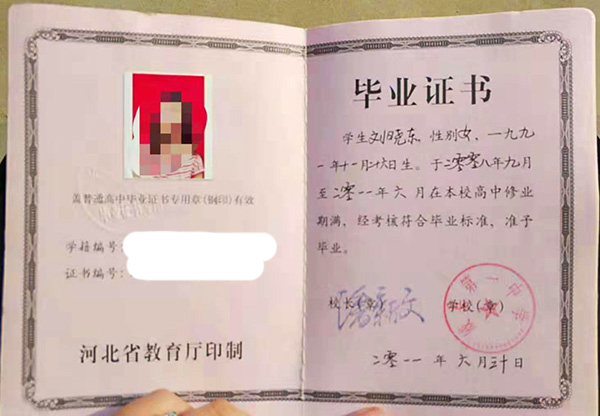 盖普通高中毕业证书专用章(钢印)有效
学籍编号:
证书编号:
河北省教育厅印制
毕业证书
学生刘晓东 性别女,一九九
一年十一月廿六日生。于二〇〇八年九月
至二〇一一年六月在本校高中修业
期满,经考核符合毕业标准,准予
毕业。
校长(章)
学校(章)
第一中学
二〇一一年六月三十日